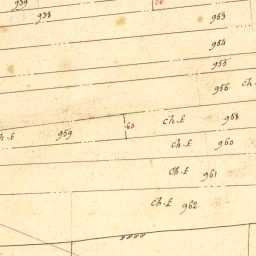 939
938
953
954
955
956 ch.
ch.E 958
60
ch.E 959
ch.E 960
Ch.E 961
ch.E 962